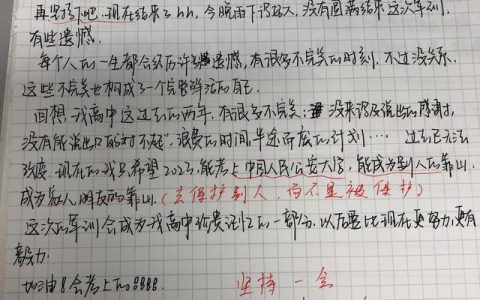 再坚持下吧, 现在结束了hh, 今晚雨下得好大, 没有圆满结束这次军训,
有些遗憾.
每个人的一生都会经历许多遗憾, 有很多不完美的时刻. 不过没关系.
这些不完美也构成了一个完整鲜活的自己.
回想我高中这过去的两年, 有很多不完美: 没来得及说出的感谢,
没有能说出口的"对不起", 浪费的时间, 半途而废的计划…… 过去已无法
改变. 现在的我只希望2023, 能考上中国人民公安大学, 能成为别人的靠山,
成为家人, 朋友的靠山. (去保护别人, 而不是被保护)
这次的军训会成为我高中珍贵记忆的一部分, 以后要比现在更努力, 更有
毅力.
加油！会考上的！！！！
坚持一会